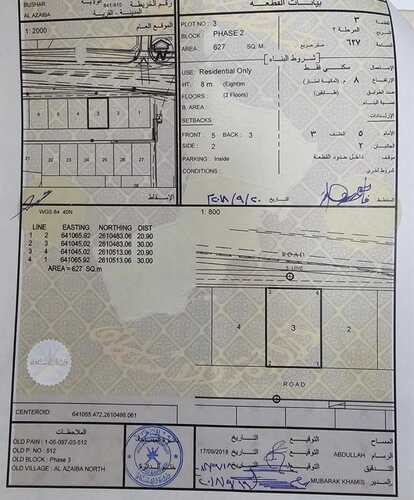 BUSHAR
AL AZAIBA
641/610
رقم الخريطة
المدينة - القرية
1: 2000
الموقع العام
بيانات القطعة
PLOT NO : 3
٣
BLOCK PHASE 2
المرحلة ٢
AREA 627 SQ. M.
٦٢٧
[ شروط البناء ]
USE: Residential Only
سكني فقط
HT: 8 m, (Eight)m
٨ م , (ثمانية أمتار)
الإرتفاع
FLOORS : (2 Floors)
(طابقين)
عدد الطوابق
B. AREA
نسبة البناء
SETBACKS
الإرتدادات
FRONT : 5 BACK : 3
الأمام ٥ الخلف ٣
SIDE : 2
الجانبين ٢
PARKING : Inside
داخل حدود القطعة
موقف
CONDITIONS
شروط أخرى
الإسقاط
التاريخ
المخطط
WGS 84 40N
LINE EASTING NORTHING DIST
1 2 641065.92 2610483.06 20.90
2 3 641045.02 2610483.06 30.00
3 4 641045.02 2610513.06 20.90
4 1 641065.92 2610513.06 30.00
AREA = 627 SQ.m
1: 800
ROAD
4
3
2
ROAD
CENTEROID 641055.472,2610498.061
الملاحظات
OLD PAIN : 1-05-097-03-512
OLD P. NO : 512
OLD BLOCK : Phase 3
OLD VILLAGE : AL AZAIBA NORTH
17/09/2018
التوقيع
المساح
ABDULLAH
الرسام
التوقيع
MUBARAK KHAMIS
المدير